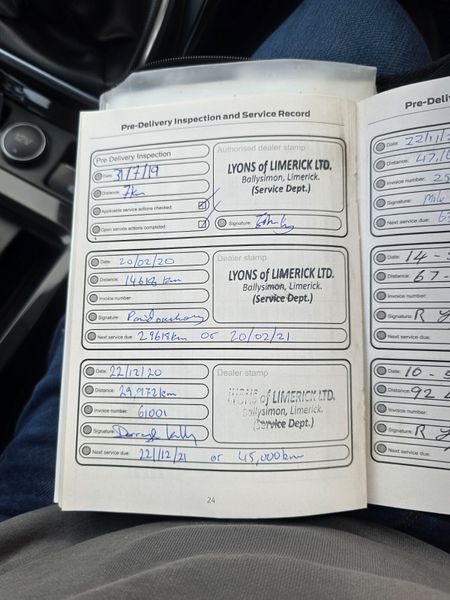 Pre-Delivery Inspection and Service Record
Pre Delivery Inspection
Date: 31/7/19
Distance: 7km
Applicable service actions checked:
Open service actions completed:
Authorised dealer stamp
LYONS of LIMERICK LTD.
Ballysimon, Limerick.
(Service Dept.)
Signature:
Date: 20/02/20
Distance: km
Invoice number:
Signature:
Next service due: 29618km or 20/02/21
Dealer stamp
LYONS of LIMERICK LTD.
Ballysimon, Limerick.
(Service Dept.)
Date: 22/12/20
Distance: 29,972km
Invoice number: 61001
Signature: Darragh Kelly
Next service due: 22/12/21 or 45,000km
Dealer stamp
LYONS of LIMERICK LTD.
Ballysimon, Limerick.
(Service Dept.)
24
Pre-Deli
Date: 22/11/
Distance: 47,1
Invoice number: 29
Signature:
Next service due: 6
Date: 14 -
Distance: 67 -
Invoice number:
Signature: R
Next service due:
Date: 10 -
Distance: 92
Invoice number:
Signature: R
Next service due: